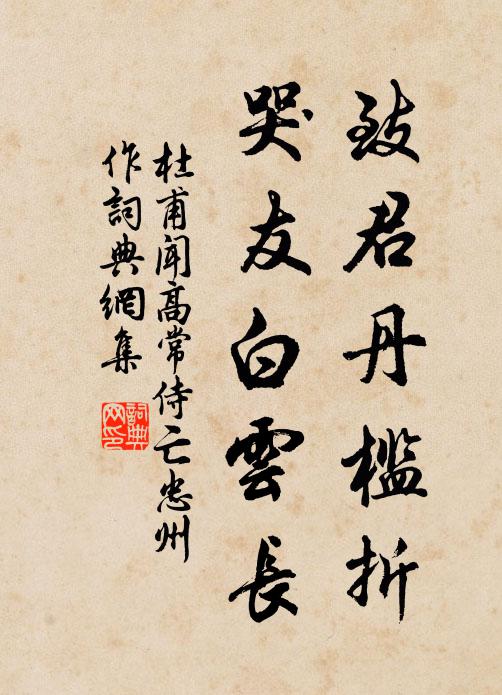 致君丹檻折
哭友白雲長
杜甫聞高常侍亡忠州
作詞典網集
詞典
网印